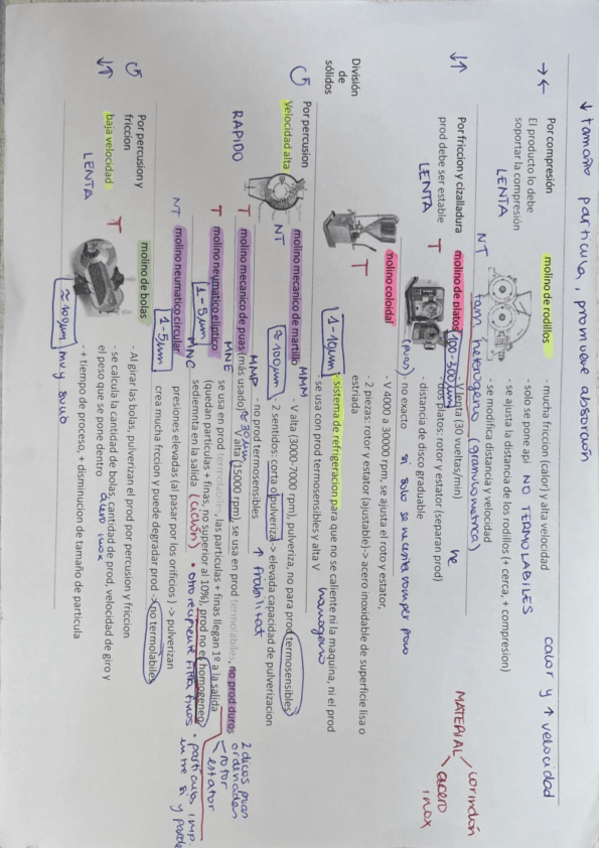 ↓ tamaño particula, promueve absorción
División
de
sólidos
→←
Por compresión
El producto lo debe
soportar la compresión
LENTA
molino de rodillos
NT
- mucha friccion (calor) y alta velocidad
calor y ↑ velocidad
- solo se pone api NO TERMOLABILES
- se ajusta la distancia de los rodillos (+ cerca, + compresion)
- se modifica distancia y velocidad
tam heterogeno (granulometrica)
↓↑
Por friccion y cizalladura
prod debe ser estable
LENTA
T
molino de platos
100-300µm
- V lenta (30 vueltas/min)
- dos platos: rotor y estator (separan prod)
- distancia de disco graduable
- no exacto si solo se necesita romper poco
MATERIAL
corindón
acero
inox
T
molino coloidal
1-10µm
- V 4000 a 30000 rpm, se ajusta el roto y estator,
- 2 piezas: rotor y estator (ajustable)-> acero inoxidable de superficie lisa o
estriada
- sistema de refrigeracion para que no se caliente ni la maquina, ni el prod
se usa con prod termosensibles y alta V homogeno
↺
Por percusion
Velocidad alta
RAPIDO
NT
molino mecanico de martillo
MMM
≈100µm
- V alta (3000-7000 rpm), pulveriza, no para prod termosensibles
- 2 sentidos: corta o pulveriza -> elevada capacidad de pulverizacion
- no prod termosensibles
↑ friabilitat
T
molino mecanico de puas (más usado)
MMP
≈30µm
V alta (15000 rpm), se usa en prod termolabiles, no prod duros
2 dicos puas
ordenadas
rotor
estator
T
molino neumatico eliptico
MNE
1-5µm
se usa en prod termolabiles, las particulas + finas llegan 1º a la salida
(quedan particulas + finas, no superior al 10%), prod no es homogeneo
sedimenta en la salida (ciclón) • otro recipiente filtra finos
• particulas imp.
entre si y pared
NT
molino neumatico circular
MNC
1-5µm
presiones elevadas (al pasar por los orificios) -> pulverizan
crea mucha friccion y puede degradar prod -> no termolabiles
↺
Por percusion y
friccion
↓↑
baja velocidad
LENTA
T
molino de bolas
≈10µm muy bueno
- Al girar las bolas, pulverizan el prod por percusion y friccion
- se calcula la cantidad de bolas, cantidad de prod, velocidad de giro y
el peso que se pone dentro acero inox
- + tiempo de proceso, + disminucion de tamaño de particula